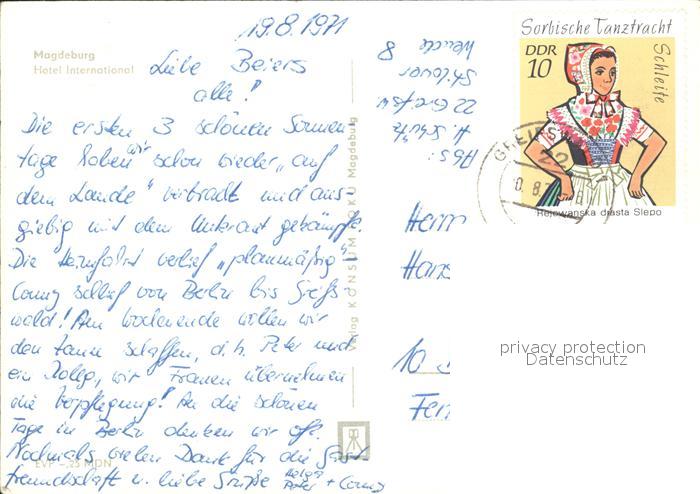 19.8.1971
Magdeburg
Hotel International
Liebe Beiers
alle!
Die ersten 3 schönen Sonnen-
tage haben wir schon wieder „auf
dem Lande" verbracht und aus-
giebig mit dem Unkraut gekämpft.
Die Heimfahrt verlief „planmäßig"
Conny schlief von Berlin bis Greifs-
wald! Am Wochenende wollen wir
den Zaun schaffen, d.h. Peter und
ein Kolleg., wir Frauen übernehmen
die Verpflegung! An die schönen
Tage in Berlin denken wir oft.
Nochmals vielen Dank für die Gast-
freundschaft u. liebe Grüße
Peter + Conny
EVP -,25 MDN
Verlag KONSUM Magdeburg
Abs:
22 Greifsw
8
Herrn
Hans
10
Fern
Sorbische Tanztracht
Schleife
DDR
10
Rejowanska drasta Slepo
GREIFS
22
privacy protection
Datenschutz